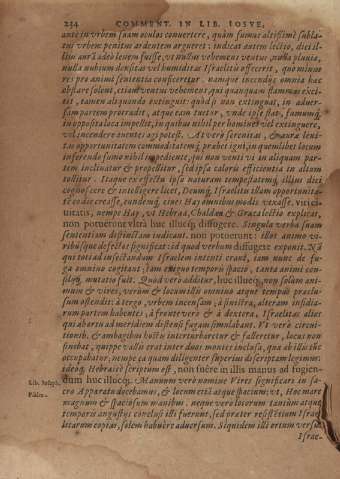 234 COMMENT. IN LIB. IOSVE,
ante in vrbem suam oculos conuertere, quàm fumus altissimè subla-
tus vrbem penitus ardentem argueret: indicat autem lectio, diei il-
lius aurā adeò leuem fuisse, vt nullus vehemens ventus, nulla pluuia,
nulla nubium densitas vel humiditas Israelitis offecerit, quò minus
res pro animi sententia conficeretur. namque incendÿs omnia hæc
obstare solent, etiam ventus vehemens, qui quanquam flammas exci-
tet, tamen aliquando extinguit: quòd si non extinguat, in aduer-
sam partem proÿcit, atque eam tuetur, vnde ipse flat, fumumq́;
in opposita loca impellit, in quibus nihil per homines vel extinguere,
vel incendere euentes agi potest. At verò serenitas, & auræ leni-
tas opportunitatem commoditatemq́; præbet igni, in quemlibet locum
inferendo sumo nihil impediente, qui non venti vi in aliquam par-
tem inclinatur & propellitur, sed ipsa caloris efficientia in altum
tollitur. Itaque ex effectu ipso naturam tempestatemq́; illius diei
cognoscere & intelligere licet, Deumq́; Israelitis illam opportunita-
tē eodiē creasse, eundemq́; eines Hay omnibus modis vexasse. viri ci-
uitatis, nempe Hay, vt Hebræa, Chaldæa & Græca lectio explicat,
non potuerunt vltrà huc illucq́; diffugere. Singula verba suam
sententiam distinctam indicant. non potuerunt: illos animo vi-
ribusque defectos significat: id quod verbum diffugere exponit. Nā
qui toti ad insectandum Israelem intenti erant, iam nunc de fu-
ga omnino cogitant; tam exiguo temporis spacio, tanta animi con-
silijq́; mutatio fuit. Quòd verò additur, huc illucq́; non solùm ani-
mum & vires, verùm & locum illis omnino atque tempus præclu-
sum ostendit: à tergo, vrbem incensam, à sinistra, alteram insidia-
rum partem habentes, à fronte verò & à dextera, Israelitas alias
qui abortu ad meridiem distensi fugam simulabant. Vt verò circui-
tionib. & ambagibus hostis interturbaretur & falleretur, locus non
sinebat, quippe vallis erat inter duos montes inclusa, quæ ab illis tūc
occupabatur; nempe ea quam diligenter superiùs descriptam legimus:
ideoq́; Hebraicè scriptum est, non fuêre in illis manus ad fugien-
dum huc illucq́;. Manuum verò nomine Vires significari in sa-
cro Apparatu docebamus, & locum etiā atque spacium; vt, Hoc mare
magnum & spaciosum manibus. neque vero locorum tantùm atque
temporis angustijs conclusi illi fuerunt, sed præter resistētium Israe-
litarum copias, solem habuêre aduersum. Siquidem illi ortum versus
Israe-